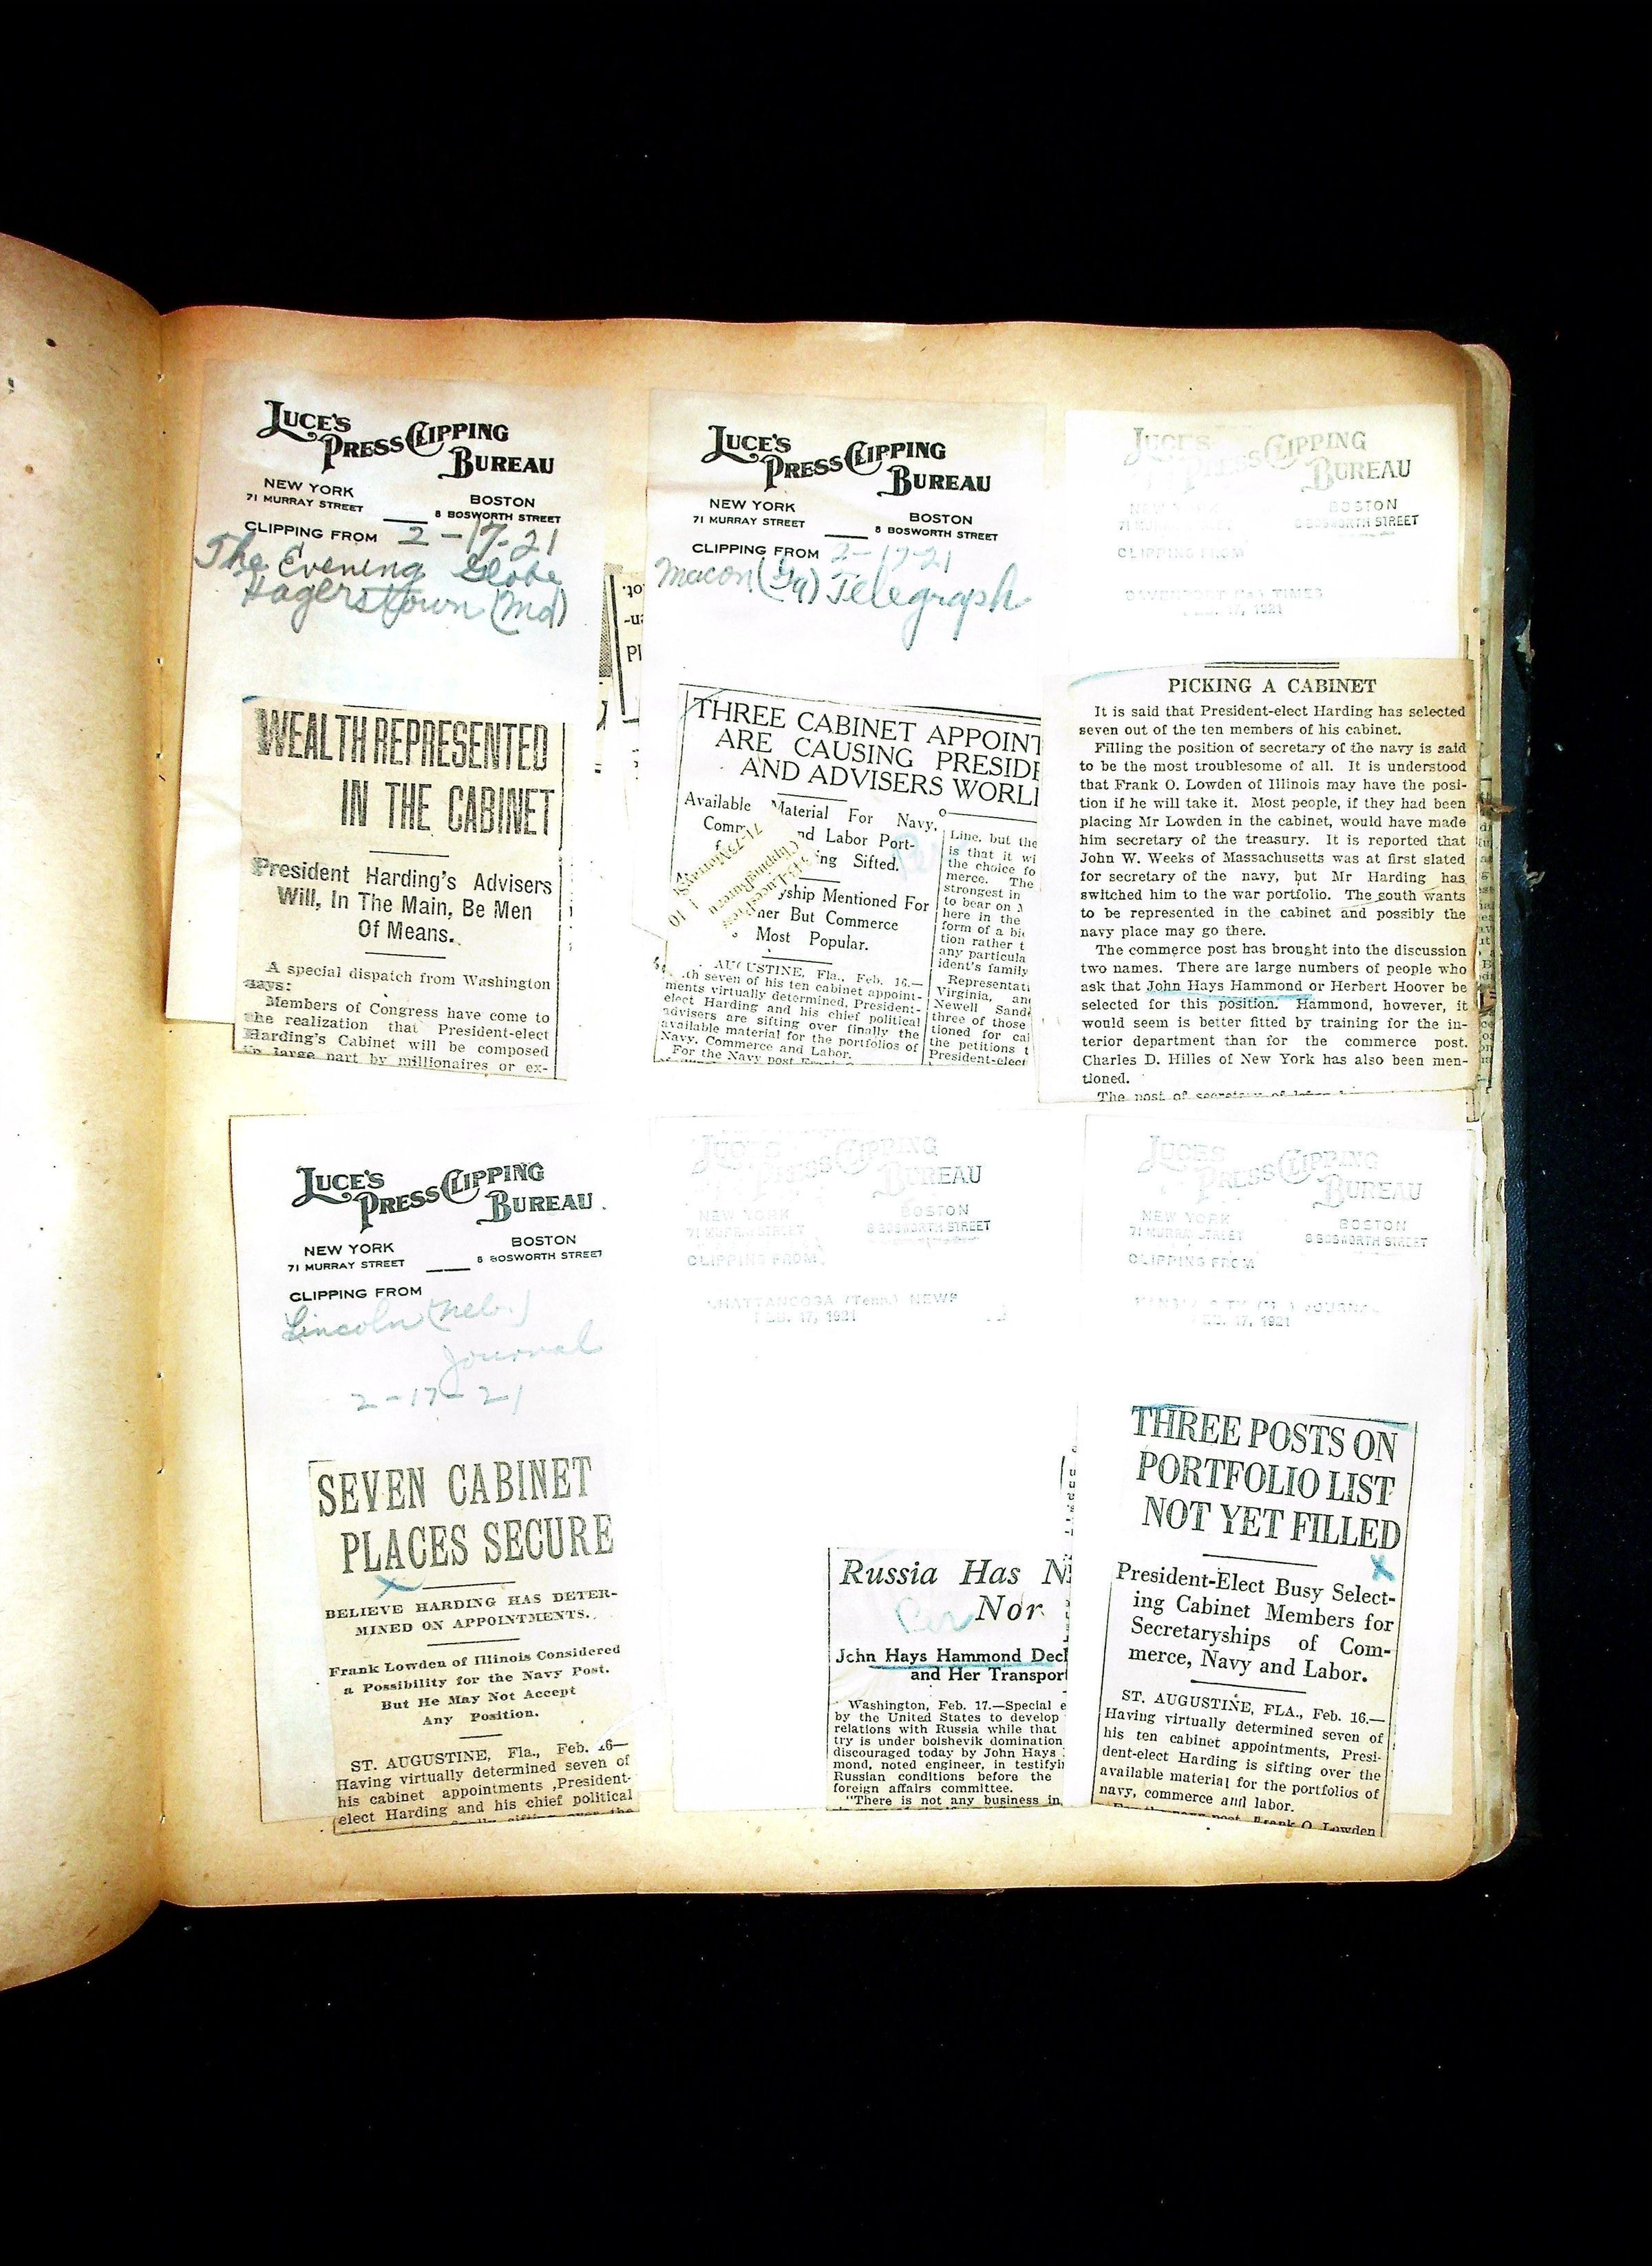 LUCE'S
PRESS CLIPPING
BUREAU
NEW YORK
71 MURRAY STREET
BOSTON
8 BOSWORTH STREET
CLIPPING FROM 2-17-21
The Evening Globe
Hagerstown (Md)
WEALTH REPRESENTED
IN THE CABINET
President Harding's Advisers
Will, In The Main, Be Men
Of Means.
A special dispatch from Washington
says:
Members of Congress have come to
the realization that President-elect
Harding's Cabinet will be composed
in large part by millionaires or ex-
LUCE'S
PRESS CLIPPING
BUREAU
NEW YORK
71 MURRAY STREET
BOSTON
8 BOSWORTH STREET
CLIPPING FROM 2-17-21
Macon (Ga) Telegraph
THREE CABINET APPOINT
ARE CAUSING PRESIDE
AND ADVISERS WORL
Available Material For Navy,
nd Labor Port-
ing Sifted.
yship Mentioned For
ner But Commerce
Most Popular.
AUGUSTINE, Fla., Feb. 16.—
th seven of his ten cabinet appoint-
ments virtually determined, President-
elect Harding and his chief political
advisers are sifting over finally the
available material for the portfolios of
Navy, Commerce and Labor.
For the Navy post Frank O
Line, but the
is that it wi
the choice fo
merce. The
strongest in
to bear on
here in the
form of a bi
tion rather t
any particula
ident's family
Representati
Virginia, an
Newell Sand
three of those
tioned for ca
the petitions t
President-elect
LUCE'S
PRESS CLIPPING
BUREAU
BOSTON
8 BOSWORTH STREET
CLIPPING FROM
DAVENPORT TIMES
17, 1921
PICKING A CABINET
It is said that President-elect Harding has selected
seven out of the ten members of his cabinet.
Filling the position of secretary of the navy is said
to be the most troublesome of all. It is understood
that Frank O. Lowden of Illinois may have the posi-
tion if he will take it. Most people, if they had been
placing Mr Lowden in the cabinet, would have made
him secretary of the treasury. It is reported that
John W. Weeks of Massachusetts was at first slated
for secretary of the navy, but Mr Harding has
switched him to the war portfolio. The south wants
to be represented in the cabinet and possibly the
navy place may go there.
The commerce post has brought into the discussion
two names. There are large numbers of people who
ask that John Hays Hammond or Herbert Hoover be
selected for this position. Hammond, however, it
would seem is better fitted by training for the in-
terior department than for the commerce post.
Charles D. Hilles of New York has also been men-
tioned.
The post of secretary of labor
LUCE'S
PRESS CLIPPING
BUREAU
NEW YORK
71 MURRAY STREET
BOSTON
8 BOSWORTH STREET
CLIPPING FROM
Lincoln (Neb.)
Journal
2-17-21
SEVEN CABINET
PLACES SECURE
BELIEVE HARDING HAS DETER-
MINED ON APPOINTMENTS.
Frank Lowden of Illinois Considered
a Possibility for the Navy Post.
But He May Not Accept
Any Position.
ST. AUGUSTINE, Fla., Feb. 16—
Having virtually determined seven of
his cabinet appointments ,President-
elect Harding and his chief political
LUCE'S
PRESS CLIPPING
BUREAU
NEW YORK
71 MURRAY STREET
BOSTON
8 BOSWORTH STREET
CLIPPING FROM
CHATTANOOGA (Tenn.) NEWS
FEB. 17, 1921
Russia Has N
Nor
John Hays Hammond Decl
and Her Transpor
Washington, Feb. 17.—Special e
by the United States to develop
relations with Russia while that
try is under bolshevik domination
discouraged today by John Hays
mond, noted engineer, in testifyi
Russian conditions before the
foreign affairs committee.
"There is not any business in
LUCE'S
PRESS CLIPPING
BUREAU
NEW YORK
71 MURRAY STREET
BOSTON
8 BOSWORTH STREET
CLIPPING FROM
KANSAS CITY JOURNAL
17, 1921
THREE POSTS ON
PORTFOLIO LIST
NOT YET FILLED
President-Elect Busy Select-
ing Cabinet Members for
Secretaryships of Com-
merce, Navy and Labor.
ST. AUGUSTINE, FLA., Feb. 16.—
Having virtually determined seven of
his ten cabinet appointments, Presi-
dent-elect Harding is sifting over the
available material for the portfolios of
navy, commerce and labor.
For the navy post, Frank O. Lowden